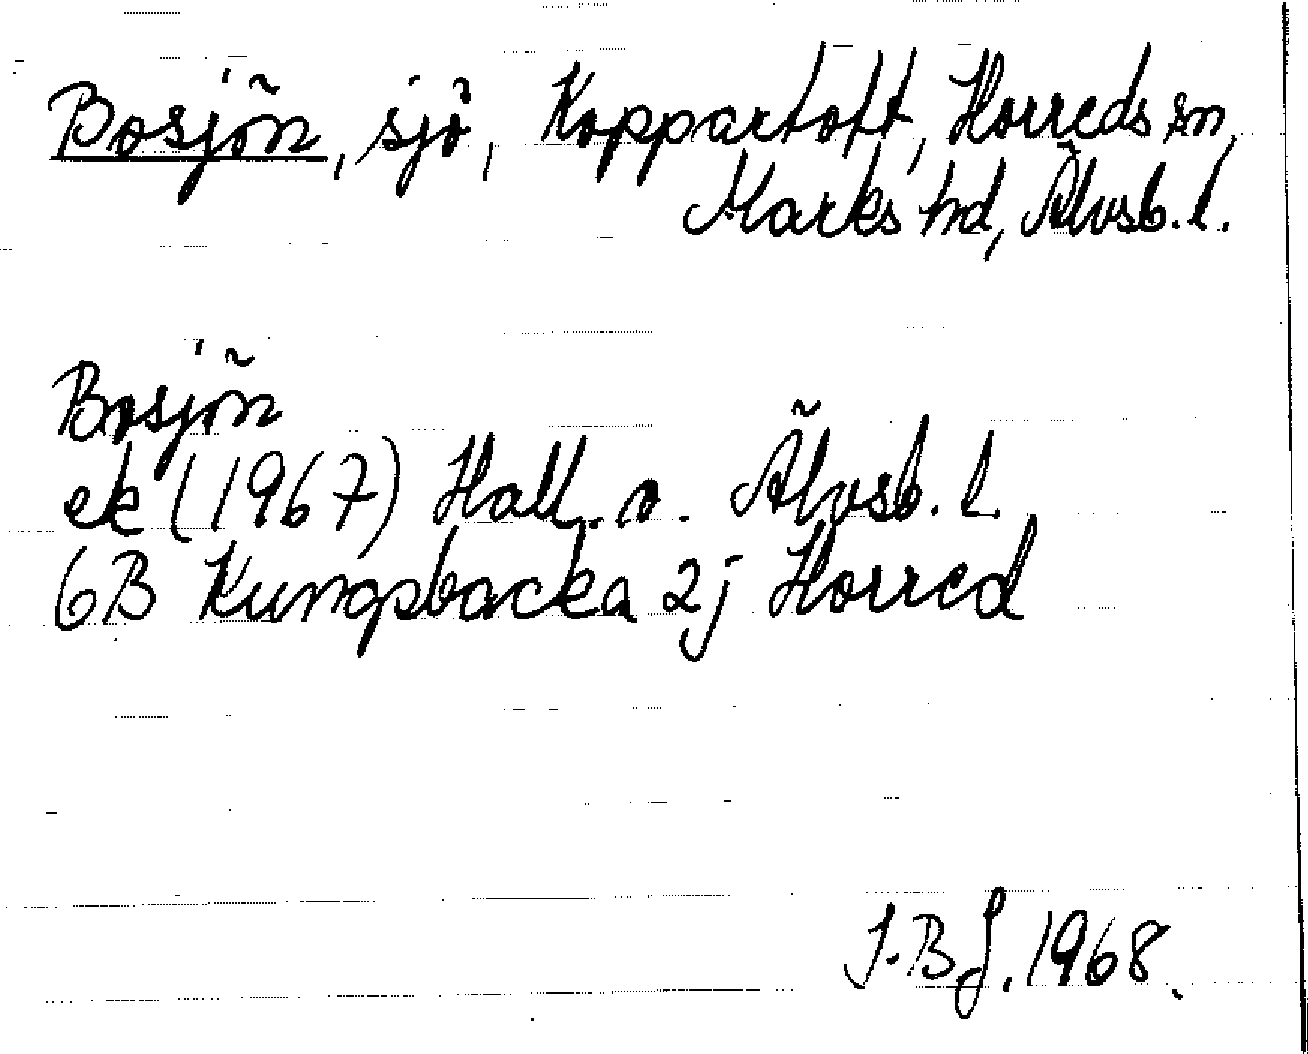 Bosjön, sjö, Koppartoft, Horreds sn,
Marks hd, Älvsb. l.
Bosjön
ek (1967) Hall. o. Älvsb. l.
6B Kungsbacka 2j Horred
J.B.J. 1968.